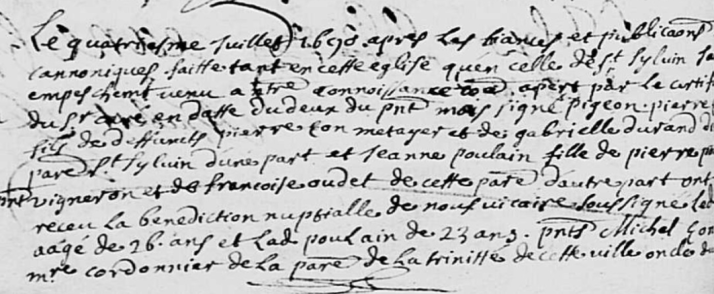 Le quatriesme Juillet 1690 apres les biances et publicaons
cannoniques faitte tant en cette eglise quen celle de st Sylvin sa
empeschemt venu a ntre connoissance coe apert par le certif
du sr curé en datte du deux du pnt mois signé pigeon. pierre
fils de deffunts pierre Con metayer et de gabrielle durand d
pare st Sylvin dune part et Jeanne poulain fille de pierre p
vigneron et de francoise oudet de cette pare dautre part ont
receu la benediction nuptialle de nous vicaire soussigné led
aagé de 26. ans et lad poulain de 23 ans. pnts Michel Con
mre cordonnier de la pare de la trinitté de cette ville oncle d